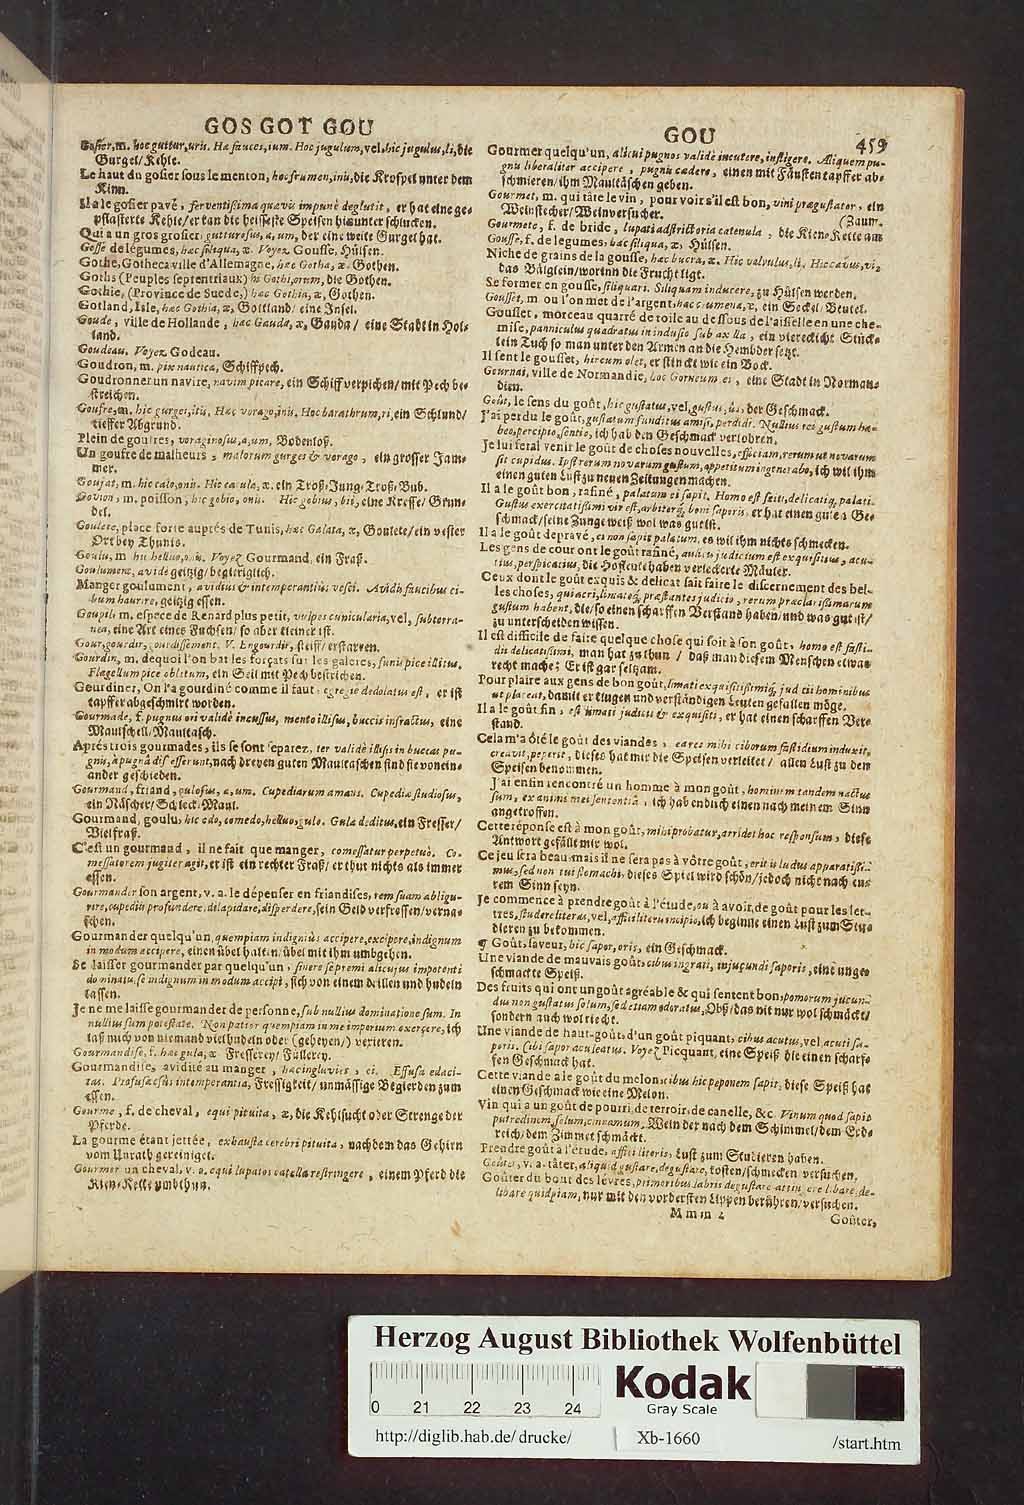 GOS GOT GOU
Gosier, m. hoc guttur, uris. Hæ fauces, ium. Hoc jugulum, vel, hic jugulus, li, die
Gurgel/Kehle.
Le haut du gosier sous le menton, hoc frumen, inis, die Krospel unter dem
Kinn.
Il a le gosier pavé, ferventissima quævis impunè deglutit, er hat eine ge-
pflasterte Kehle/er kan die heisseste Speisen hinunter schlucken.
Qui a un gros gosier, gutturosus, a, um, der eine weite Gurgel hat.
Gosse de légumes, hæc siliqua, æ. Voyez Gousse, Hülsen.
Gothe, Gotheca ville d'Allemagne, hæc Gotha, æ. Gothen.
Goths (Peuples septentriaux) hi Gothi, orum, die Gothen.
Gothie, (Province de Suede,) hæc Gothia, æ, Gothen.
Gotland, Isle, hæc Gothia, æ, Gottland/ eine Insel.
Goude, ville de Hollande, hæc Gauda, æ, Gauda/ eine Stadt in Hol-
land.
Goudeau. Voyez Godeau.
Goudron, m. pix nautica, Schiffpech.
Goudronner un navire, navim picare, ein Schiff verpichen/mit Pech be-
streichen.
Goufre, m. hic gurges, itis, Hæc vorago, inis, Hoc barathrum, ri, ein Schlund/
tieffer Abgrund.
Plein de goufres, voraginosus, a, um, Bodenloß.
Un goufre de malheurs, malorum gurges & vorago, ein grosser Jam-
mer.
Goujat, m. hic calo, onis. Hic cacula, æ. ein Troß-Jung-Troß-Bub.
Goujon, m. poisson, hic gobio, onis. Hic gobius, bii, eine Kresse/Grun-
del.
Goulete, place forte auprés de Tunis, hæc Galata, æ, Goulete/ein vester
Ort bey Thunis.
Goulu, m hic helluo, onis. Voyez Gourmand, ein Fraß.
Goulument, avidè geitzig/begieriglich.
Manger goulument, avidius & intemperantius vesci. Avidis faucibus ci-
bum haurire, geitzig essen.
Goupil, m. espece de Renard plus petit, vulpes cunicularia, vel, subterra-
nea, eine Art eines Fuchsen/so aber kleiner ist.
Gour, gourdir, gourdissement. V. Engourdir, steiff/erstarren.
Gourdin, m. dequoi l'on bat les forçats sur les galeres, funis pice illitus.
Flagellum pice oblitum, ein Seil mit Pech bestrichen.
Gourdiner, On l'a gourdiné comme il faut, egregiè dedolatus est, er ist
tapffer abgeschmirt worden.
Gourmade, f. pugnus ori validè incussus, mento illisus, buccis infractus, eine
Maulschell/Maultasch.
Aprés trois gourmades, ils se sont separez, ter validè illisis in buccas pu-
gnis, à pugnâ discesserunt, nach dreyen guten Maultaschen sind sie von ein-
ander geschieden.
Gourmand, friand, gulosus, a, um. Cupediarum amans. Cupediæ studiosus,
ein Näscher/Schleck-Maul.
Gourmand, goulu, hic edo, comedo, helluo, gulo. Gulæ deditus, ein Fresser/
Vielfraß.
C'est un gourmand, il ne fait que manger, comessatur perpetuò. Co-
messatorem jugiter agit, er ist ein rechter Fraß/er thut nichts als immer
essen.
Gourmander son argent, v. a. le dépenser en friandises, rem suam abligu-
rire, cupediis profundere, dilapidare, disperdere, sein Geld verfressen/verna-
schen.
Gourmander quelqu'un, quempiam indigniùs accipere, excipere, indignum
in modum accipere, einen übel halten/übel mit ihm umbgehen.
Se laisser gourmander par quelqu'un, sinere se premi alicujus impotenti
dominatu, se indignum in modum accipi, sich von einem drillen und hudeln
lassen.
Je ne me laisse gourmander de personne, sub nullius dominatione sum. In
nullius sum potestate. Non patior quempiam in me imperium exercere, ich
laß mich von niemand viel hudeln oder (geheyen/) vexieren.
Gourmandise, f. hæc gula, æ Fresserey/ Füllerey.
Gourmandise, avidité au manger, hæc ingluvies, ei. Effusa edaci-
tas. Profusa esûs intemperantia, Fressigkeit/ unmässige Begierden zum
essen.
Gourme, f. de cheval, equi pituita, æ, die Kehlsucht oder Strenge der
Pferde.
La gourme étant jettée, exhausta cerebri pituita, nachdem das Gehirn
vom Unrath gereiniget.
Gourmer un cheval, v. a. equi lupatos catella restringere, einem Pferd die
Kien-Kette umbthun.
GOU
459
Gourmer quelqu'un, alicui pugnos validè incutere, infligere. Aliquem pu-
gnis liberaliter accipere, pugnis cædere, einen mit Fäusten tapffer ab-
schmieren/ihm Maultäschen geben.
Gourmet, m. qui tâte le vin, pour voir s'il est bon, vini prægustator, ein
Weinstecher/Weinversucher.
(Zaum.
Gourmete, f. de bride, lupati adstrictoria catenula, die Kien-Kette am
Gousse, f. de legumes, hæc siliqua, æ, Hülsen.
Niche de grains de la gousse, hæc bucca, æ. Hic valvulus, li. Hic cavus, vi,
das Bälglein/worinn die Frucht ligt.
Se former en gousse, siliquari. Siliquam inducere, zu Hülsen werden.
Gousset, m ou l'on met de l'argent, hæc crumena, æ, ein Seckel/Beutel.
Gousset, morceau quarré de toile au dessous de l'aisselle en une che-
mise, panniculus quadratus in indusio sub axilla, ein viereckicht Stück-
lein Tuch so man unter den Armen an die Hembder setzt.
Il sent le gousset, hircum olet, er stinckt wie ein Bock.
Gournai, ville de Normandie, hoc Gorneum, ei, eine Stadt in Norman-
dien.
Goût, le sens du goût, hic gustatus, vel, gustus, ûs, der Geschmack.
J'ai perdu le goût, gustatum funditus amisi, perdidi. Nullius rei gustum ha-
beo, percipio, sentio, ich hab den Geschmack verlohren.
Je lui ferai venir le goût de choses nouvelles, efficiam, rerum ut novarum
sit cupidus. Ipsi rerum novarum gustum, appetitum ingenerabo, ich wil ihm
einen guten Lust zu neuen Zeitungen machen.
Il a le goût bon, rafiné, palatum ei sapit. Homo est sciti, delicatiq; palati.
Gustûs exercitatissimi vir est, arbiterq; boni saporis, er hat einen guten Ge-
schmack/seine Zunge weiß wol was gut ist.
Il a le goût depravé, ei non sapit palatum, es wil ihm nichts schmecken.
Les gens de cour ont le goût rafiné, aulicis judicium est exquisitius, acu-
tius, perspicacius, die Hoffleute haben verleckerte Mäuler.
Ceux dont le goût exquis & delicat sait faire le discernement des bel-
les choses, qui acri, limatoq; præstantes judicio, rerum præclarissimarum
gustum habent, die/so einen scharffen Verstand haben/und was gut ist/
zu unterscheiden wissen.
Il est difficile de faire quelque chose qui soit à son goût, homo est fasti-
dii delicatissimi, man hat zu thun / daß man diesem Menschen etwas
recht mache; Er ist gar seltzam.
Pour plaire aux gens de bon goût, limati exquisitissimiq; judicii hominibus
ut placeat, damit er klugen und verständigen Leuten gefallen möge.
Il a le goût fin, est limati judicii & exquisiti, er hat einen scharffen Ver-
stand.
Cela m'a ôté le goût des viandes, ea res mihi ciborum fastidium induxit,
creavit, peperit, dieses hat mir die Speisen verleitet/ allen Lust zu den
Speisen benommen.
J'ai enfin rencontré un homme à mon goût, hominem tandem nactus
sum, ex animi mei sententiâ, ich hab endlich einen nach meinem Sinn
angetroffen.
Cette réponse est à mon goût, mihi probatur, arridet hoc responsum, diese
Antwort gefällt mir wol.
Ce jeu sera beau mais il ne sera pas à vôtre goût, erit is ludus apparatissi-
mus, sed non tui stomachi, dieses Spiel wird schön/jedoch nicht nach eu-
rem Sinn seyn.
Je commence à prendre goût à l'étude, ou à avoir de goût pour les let-
tres, studere literas, vel, affici literis incipio, ich beginne einen Lust zum Stu-
dieren zu bekommen.
¶ Goût, saveur, hic sapor, oris, ein Geschmack.
Une viande de mauvais goût, cibus ingrati, injucundi saporis, eine unge-
schmackte Speiß.
Des fruits qui ont un goût agréable & qui sentent bon, pomorum jucun-
dus non gustatus solum, sed etiam odoratus, Obß/das nit nur wol schmäckt/
sondern auch wol riecht.
Une viande de haut-goût, d'un goût piquant, cibus acutus, vel, acuti sa-
poris. Cibi sapor aculeatus. Voyez Picquant, eine Speiß die einen scharf-
fen Geschmack hat.
Cette viande a le goût du melon, cibus hic peponem sapit, diese Speiß hat
einen Geschmack wie eine Melon.
Vin qui a un goût de pourri, de terroir, de canelle, &c. Vinum quod sapit
putredinem, solum, cinnamum, Wein der nach dem Schimmel/dem Erd-
reich/dem Zimmet schmäckt.
Prendre goût à l'étude, affici literis, Lust zum Studieren haben.
Goûter, v. a. tâter, aliquid gustare, degustare, kosten/schmecken/versuchen.
Goûter du bout des lévres, primoribus labris degustare, attingere, libare, de-
libare quidpiam, nur mit den vordersten Lippen berühren/versuchen.
Mmm 2
Goûter,
Herzog August Bibliothek Wolfenbüttel
0 21 22 23 24
Kodak
Gray Scale
http://diglib.hab.de/drucke/ Xb-1660 /start.htm